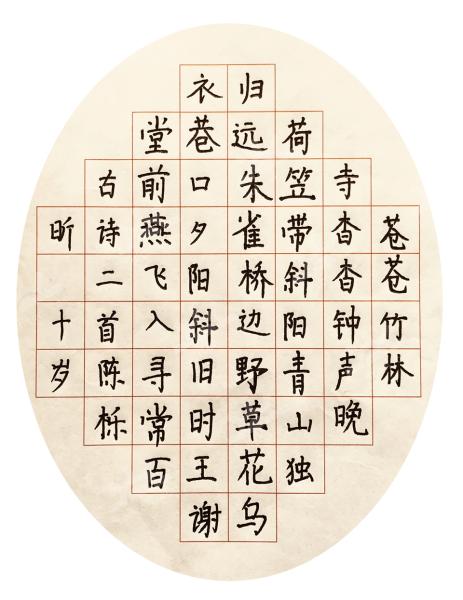 苍苍竹林
寺杳杳钟声晚
荷笠带斜阳青山独
归远朱雀桥边野草花乌
衣巷口夕阳斜旧时王谢
堂前燕飞入寻常百
古诗二首陈栎
昕十岁